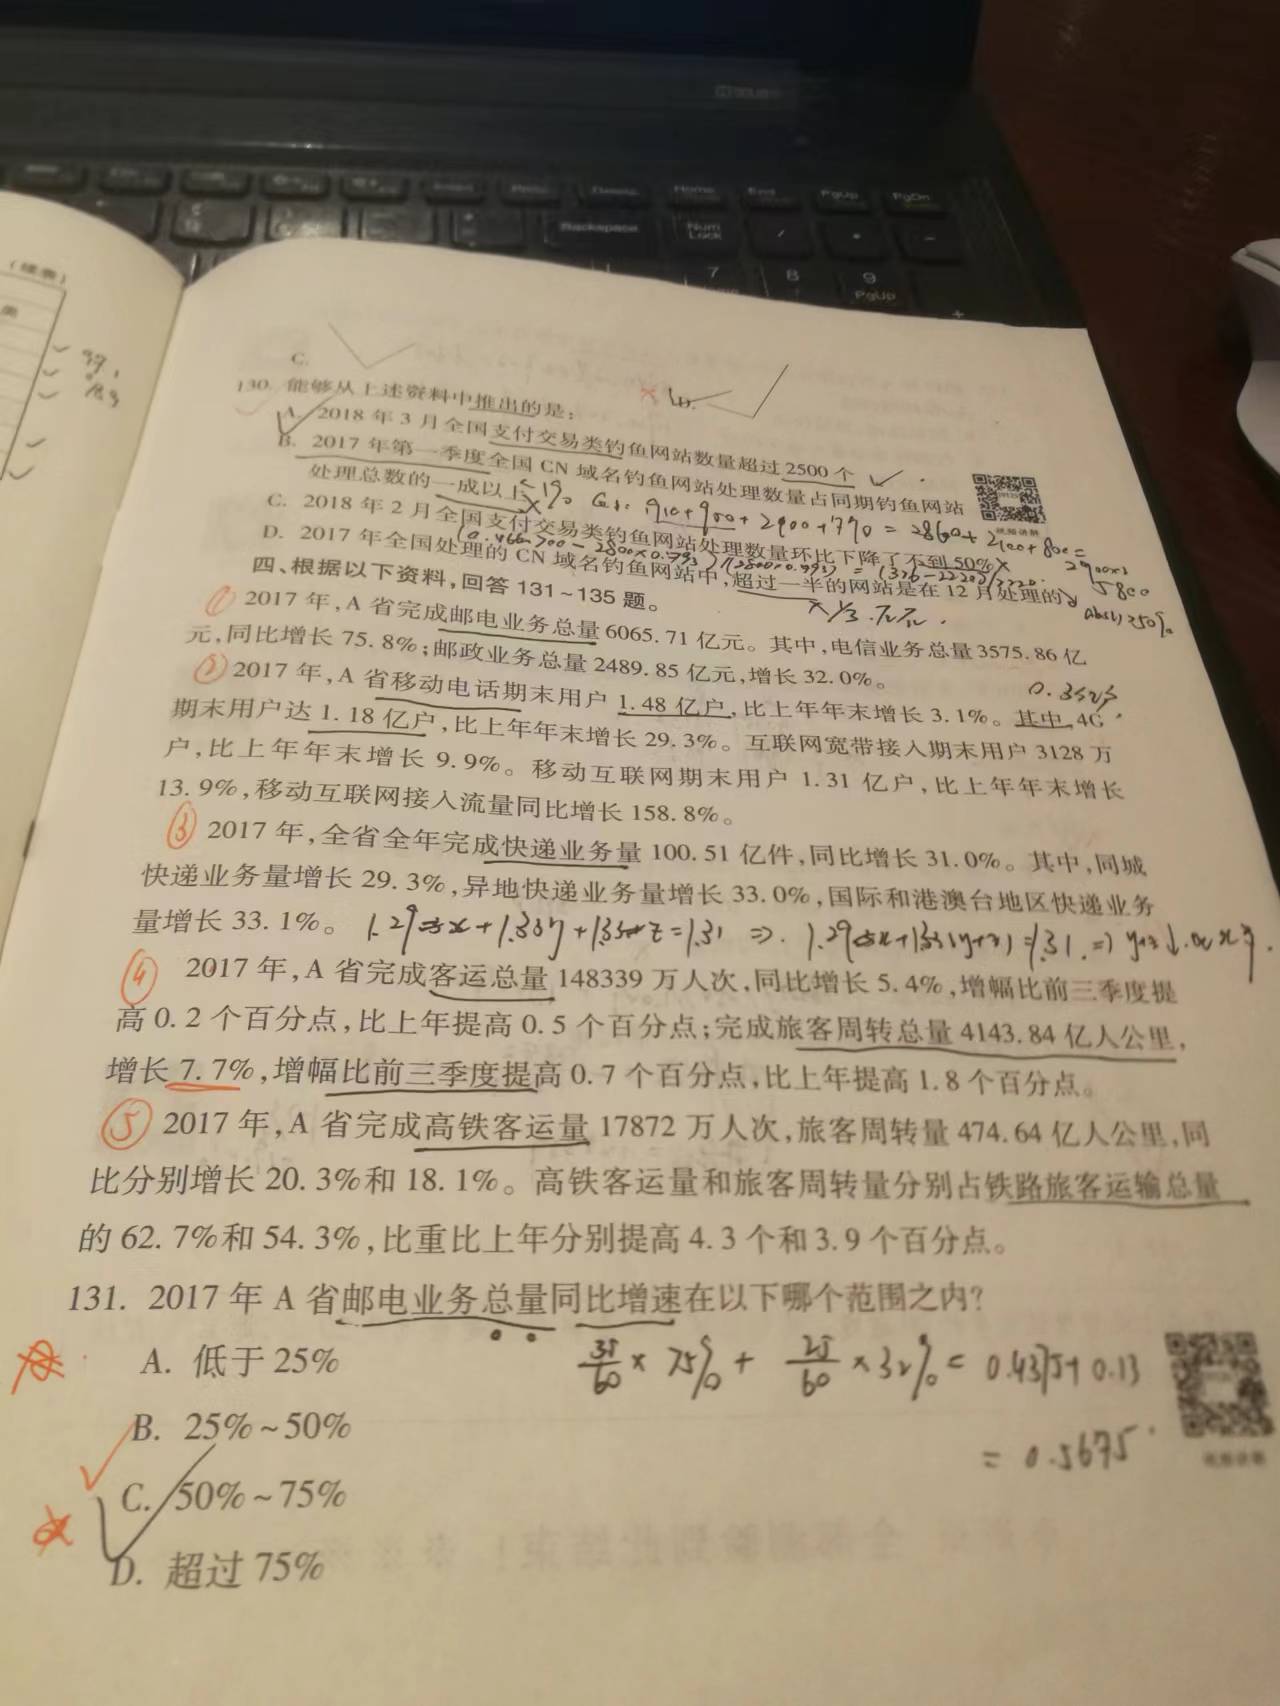 Backspace
Home
End
PgUp
PgDn
Num Lock
7
8
9
PgUp
（续表）
类
C.
130. 能够从上述资料中推出的是：
A. 2018 年 3 月全国支付交易类钓鱼网站数量超过 2500 个
B. 2017 年第一季度全国 CN 域名钓鱼网站处理数量占同期钓鱼网站
处理总数的一成以上
C. 2018 年 2 月全国支付交易类钓鱼网站处理数量环比下降了不到 50%
D. 2017 年全国处理的 CN 域名钓鱼网站中,超过一半的网站是在 12 月处理的
四、根据以下资料,回答 131~135 题。
① 2017 年,A 省完成邮电业务总量 6065.71 亿元。其中,电信业务总量 3575.86 亿
元,同比增长 75.8%;邮政业务总量 2489.85 亿元,增长 32.0%。
② 2017 年,A 省移动电话期末用户 1.48 亿户,比上年年末增长 3.1%。其中,4G
期末用户达 1.18 亿户,比上年年末增长 29.3%。互联网宽带接入期末用户 3128 万
户,比上年年末增长 9.9%。移动互联网期末用户 1.31 亿户,比上年年末增长
13.9%,移动互联网接入流量同比增长 158.8%。
③ 2017 年,全省全年完成快递业务量 100.51 亿件,同比增长 31.0%。其中,同城
快递业务量增长 29.3%,异地快递业务量增长 33.0%,国际和港澳台地区快递业务
量增长 33.1%。
④ 2017 年,A 省完成客运总量 148339 万人次,同比增长 5.4%,增幅比前三季度提
高 0.2 个百分点,比上年提高 0.5 个百分点;完成旅客周转总量 4143.84 亿人公里,
增长 7.7%,增幅比前三季度提高 0.7 个百分点,比上年提高 1.8 个百分点。
⑤ 2017 年,A 省完成高铁客运量 17872 万人次,旅客周转量 474.64 亿人公里,同
比分别增长 20.3%和 18.1%。高铁客运量和旅客周转量分别占铁路旅客运输总量
的 62.7%和 54.3%,比重比上年分别提高 4.3 个和 3.9 个百分点。
131. 2017 年 A 省邮电业务总量同比增速在以下哪个范围之内?
A. 低于 25%
35/60 × 75% + 25/60 × 32% = 0.4375+0.13
B. 25%~50%
= 0.5675
C. 50%~75%
D. 超过 75%